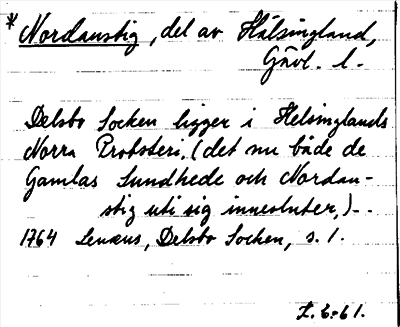 * Nordanstig, del av Hälsingland,
Gävl. l.
Delsbo Socken ligger i Helsinglands
Norra Probsteri, (det nu både de
Gamlas Sundhede och Nordan-
stig uti sig innesluter,)..
1764 Lenæus, Delsbo Socken, s. 1.